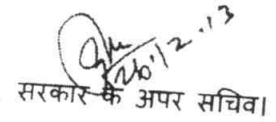 26.12.13
सरकार के अपर सचिव।